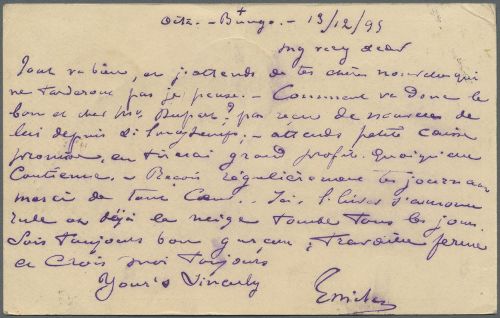 Oita. - Bungo. - 13/12/95
My very dear
Tout va bien, en j'attends de tes chères nouvelles qui
ne tarderont pas je pense. - Comment va donc le
bon et cher Mr Dupont? pas reçu de nouvelles de
lui depuis si longtemps, - attends petite caisse
promise, en tirerai grand profit. Quoiqu'en
Contienne. - Reçois régulièrement tes journaux
merci de tout Cœur. - Ici, l'hiver s'annonce
rude et déjà la neige tombe tous les jours.
Sois toujours bon garçon, travaille ferme
et Crois moi toujours
Your's Sincerely